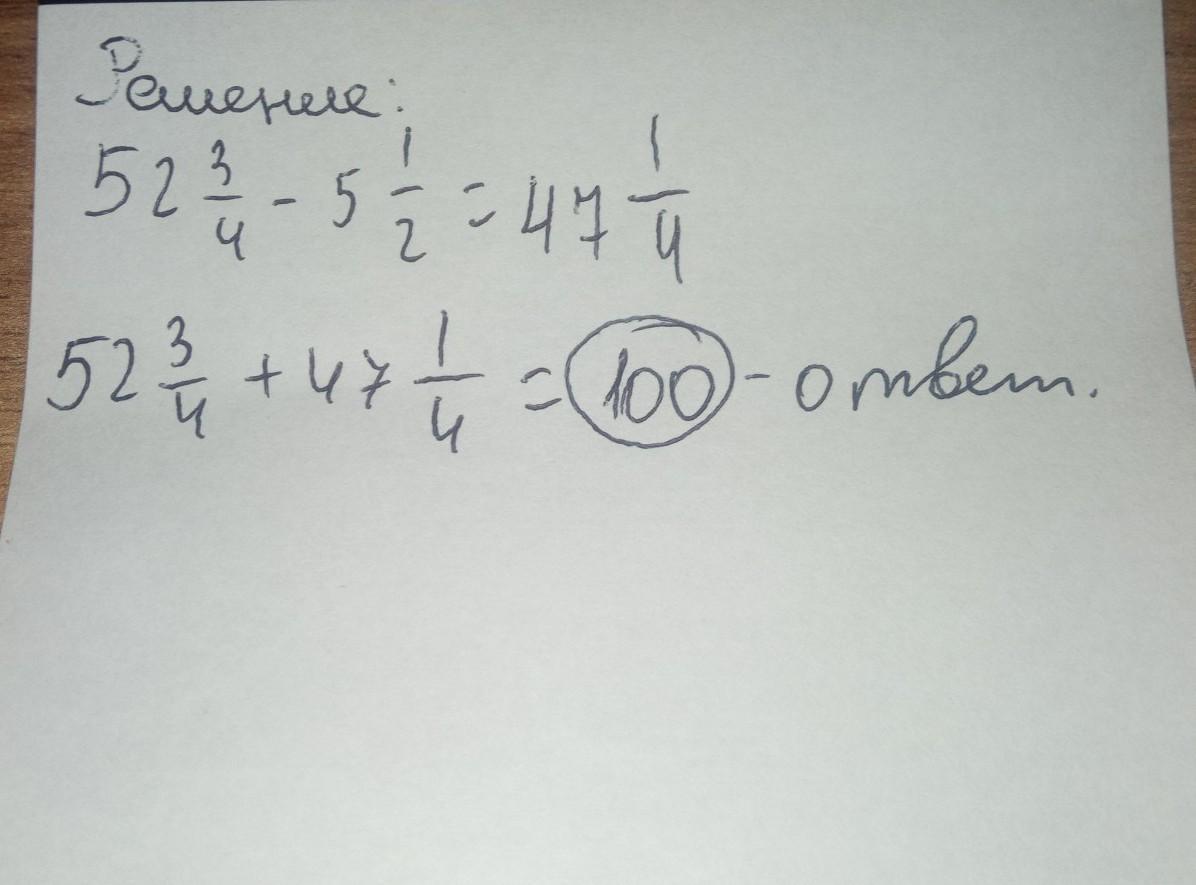 Решение:
52 3/4 - 5 1/2 = 47 1/4
52 3/4 + 47 1/4 = 100 - ответ.